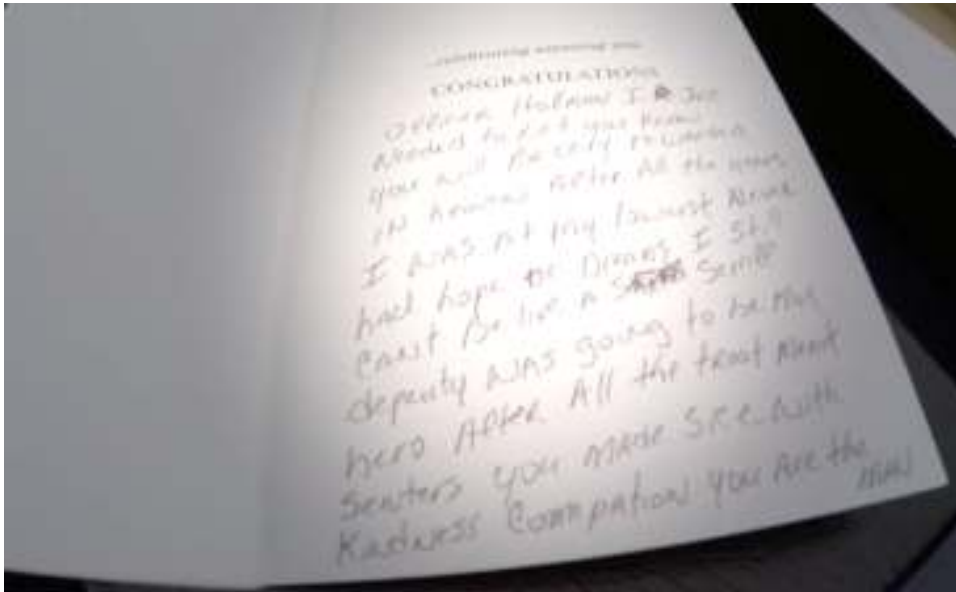 celebrating amazing you
CONGRATULATIONS
Officer Holman I Joe
Needed to let you know
you will be rewarded
IN heaven After All the years
I WAS At my lowest Never
had hope or Dreams I still
can't believe A Seriff
deputy WAS going to be my
hero After All the treat ment
Senters you MADE SEE with
Kadness Compation you ARE the
MAN